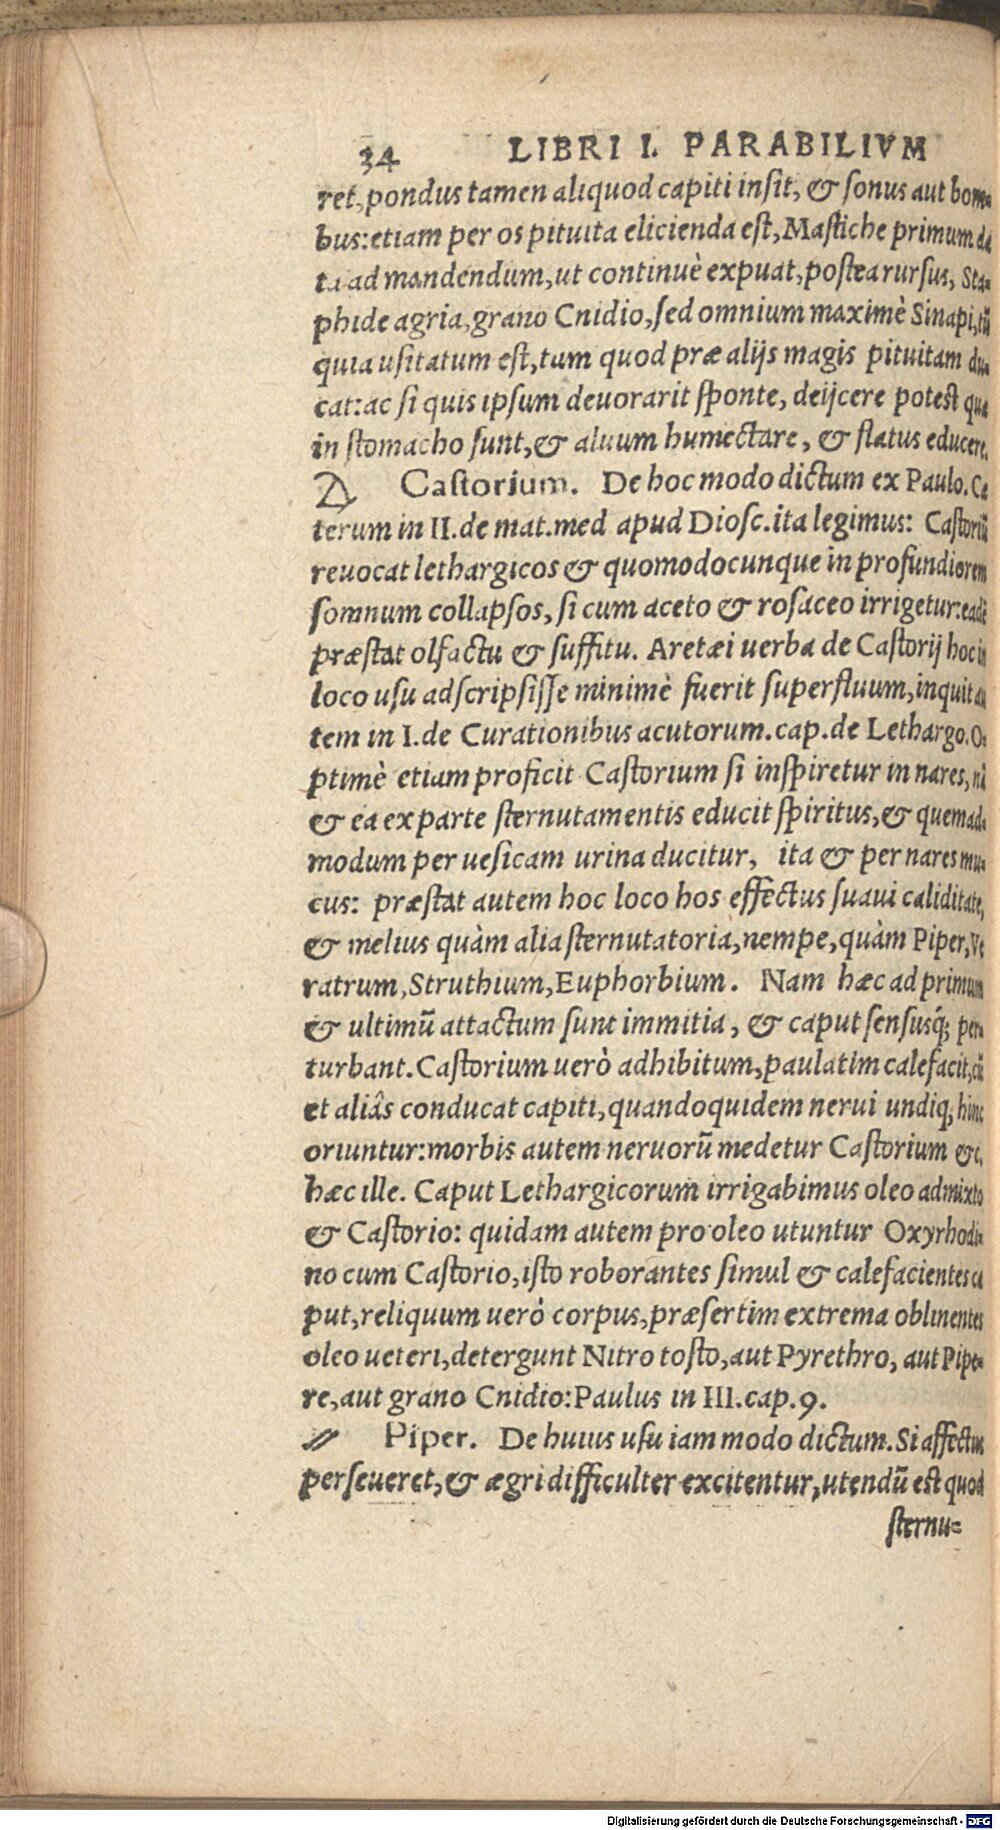 34 LIBRI I. PARABILIVM
ret, pondus tamen aliquod capiti insit, & sonus aut bom-
bus: etiam per os pituita elicienda est, Mastiche primum da
ta ad mandendum, ut continuè expuat, postea rursus, Sta-
phide agria, grano Cnidio, sed omnium maximè Sinapi, tũ
quia usitatum est, tum quod præ alijs magis pituitam du-
cat: ac si quis ipsum deuorarit sponte, deijcere potest quæ
in stomacho sunt, & aluum humectare, & flatus educere.
Castorium. De hoc modo dictum ex Paulo. Cæ
terum in II. de mat. med apud Diosc. ita legimus: Castoriũ
reuocat lethargicos & quomodocunque in profundiorem
somnum collapsos, si cum aceto & rosaceo irrigetur: eadẽ
præstat olfactu & suffitu. Aretæi uerba de Castorij hoc in
loco usu adscripsisse minimè fuerit superfluum, inquit au
tem in I. de Curationibus acutorum. cap. de Lethargo. O-
ptimè etiam proficit Castorium si inspiretur in nares, nã
& ea ex parte sternutamentis educit spiritus, & quemad-
modum per uesicam urina ducitur, ita & per nares mu-
cus: præstat autem hoc loco hos effectus suaui caliditate,
& melius quàm alia sternutatoria, nempe, quàm Piper, Ve
ratrum, Struthium, Euphorbium. Nam hæc ad primum
& ultimũ attactum sunt immitia, & caput sensusq; per-
turbant. Castorium uerò adhibitum, paulatim calefacit, cũ
et aliâs conducat capiti, quandoquidem nerui undiq; hinc
oriuntur: morbis autem neruorũ medetur Castorium &c.
hæc ille. Caput Lethargicorum irrigabimus oleo admixto
& Castorio: quidam autem pro oleo utuntur Oxyrhodi-
no cum Castorio, isto roborantes simul & calefacientes ca
put, reliquum uerò corpus, præsertim extrema oblinentes
oleo ueteri, detergunt Nitro tosto, aut Pyrethro, aut Pipe-
re, aut grano Cnidio: Paulus in III. cap. 9.
Piper. De huius usu iam modo dictum. Si affectus
perseueret, & ægri difficulter excitentur, utendũ est quod
sternu-
Digitalisierung gefördert durch die Deutsche Forschungsgemeinschaft - DFG